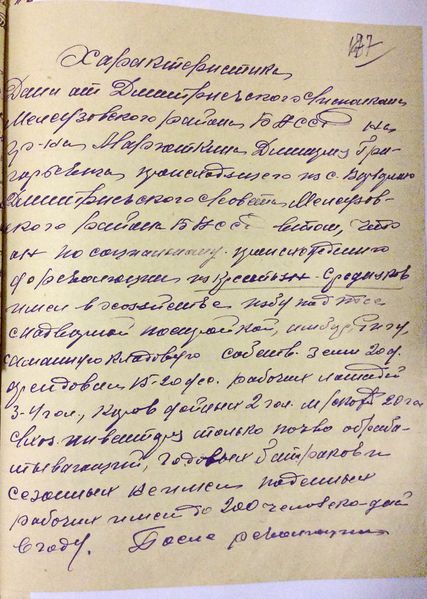 187
Характеристика
Дана от Дмитриевского с/исполкома
Мелеузовского района БАССР на
гр-на Марфуткина Дмитрия Гри-
горьевича происходящего из с.
Дмитриевского с/совета Мелеузов-
ского района БАССР в том, что
он по социальному происхождению
до революции из крестьян-средняков
имел в хозяйстве избу под
с надворной постройкой, амбар
саманную кладовую собств. земли 20 д.
арендовал 15-20 дес. рабочих лошадей
3-4 гол., коров дойных 2 гол. м/скота 20 гол
с/хоз. инвентарь только почво обраба-
тывающий, годовых батраков и
сезонных не имел поденных
рабочих имел до 200 человеко-дней
в году. После революции